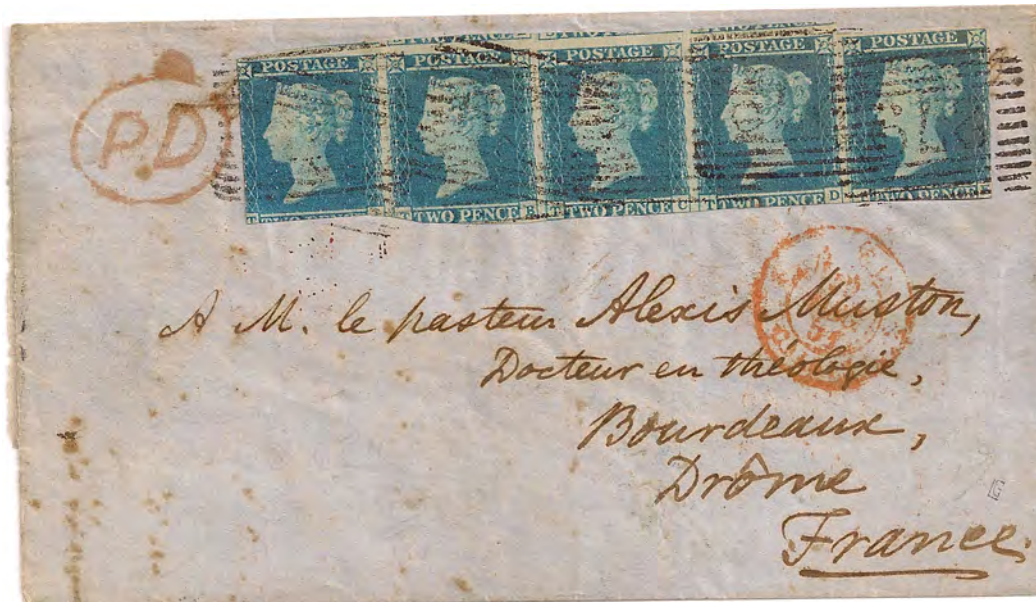 P.D
POSTAGE POSTAGE POSTAGE POSTAGE POSTAGE
TWO PENCE TWO PENCE TWO PENCE TWO PENCE TWO PENCE
A M. le pasteur Alexis Muston,
Docteur en théologie,
Bourdeaux,
Drôme
France.